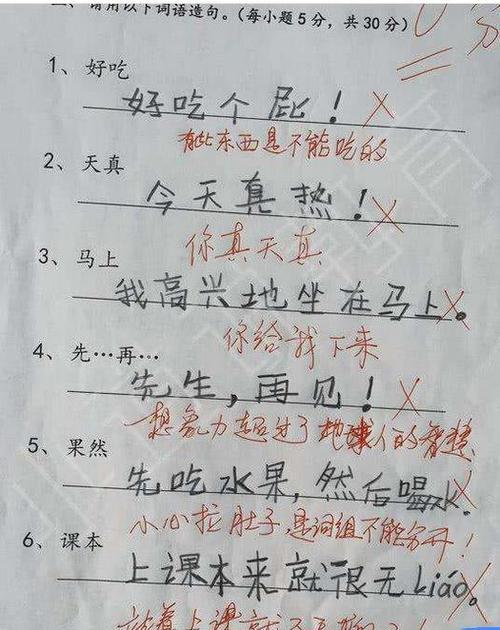 请用以下词语造句。(每小题5分，共30分)
0分
1、好吃
好吃个屁！
有些东西是不能吃的
2、天真
今天真热！
你真天真
3、马上
我高兴地坐在马上。
你给我下来
4、先…再…
先生，再见！
想象力超过了地球人的智慧
5、果然
先吃水果，然后喝水。
小心拉肚子，是词组不能分开！
6、课本
上课本来就很无Liáo。
上课